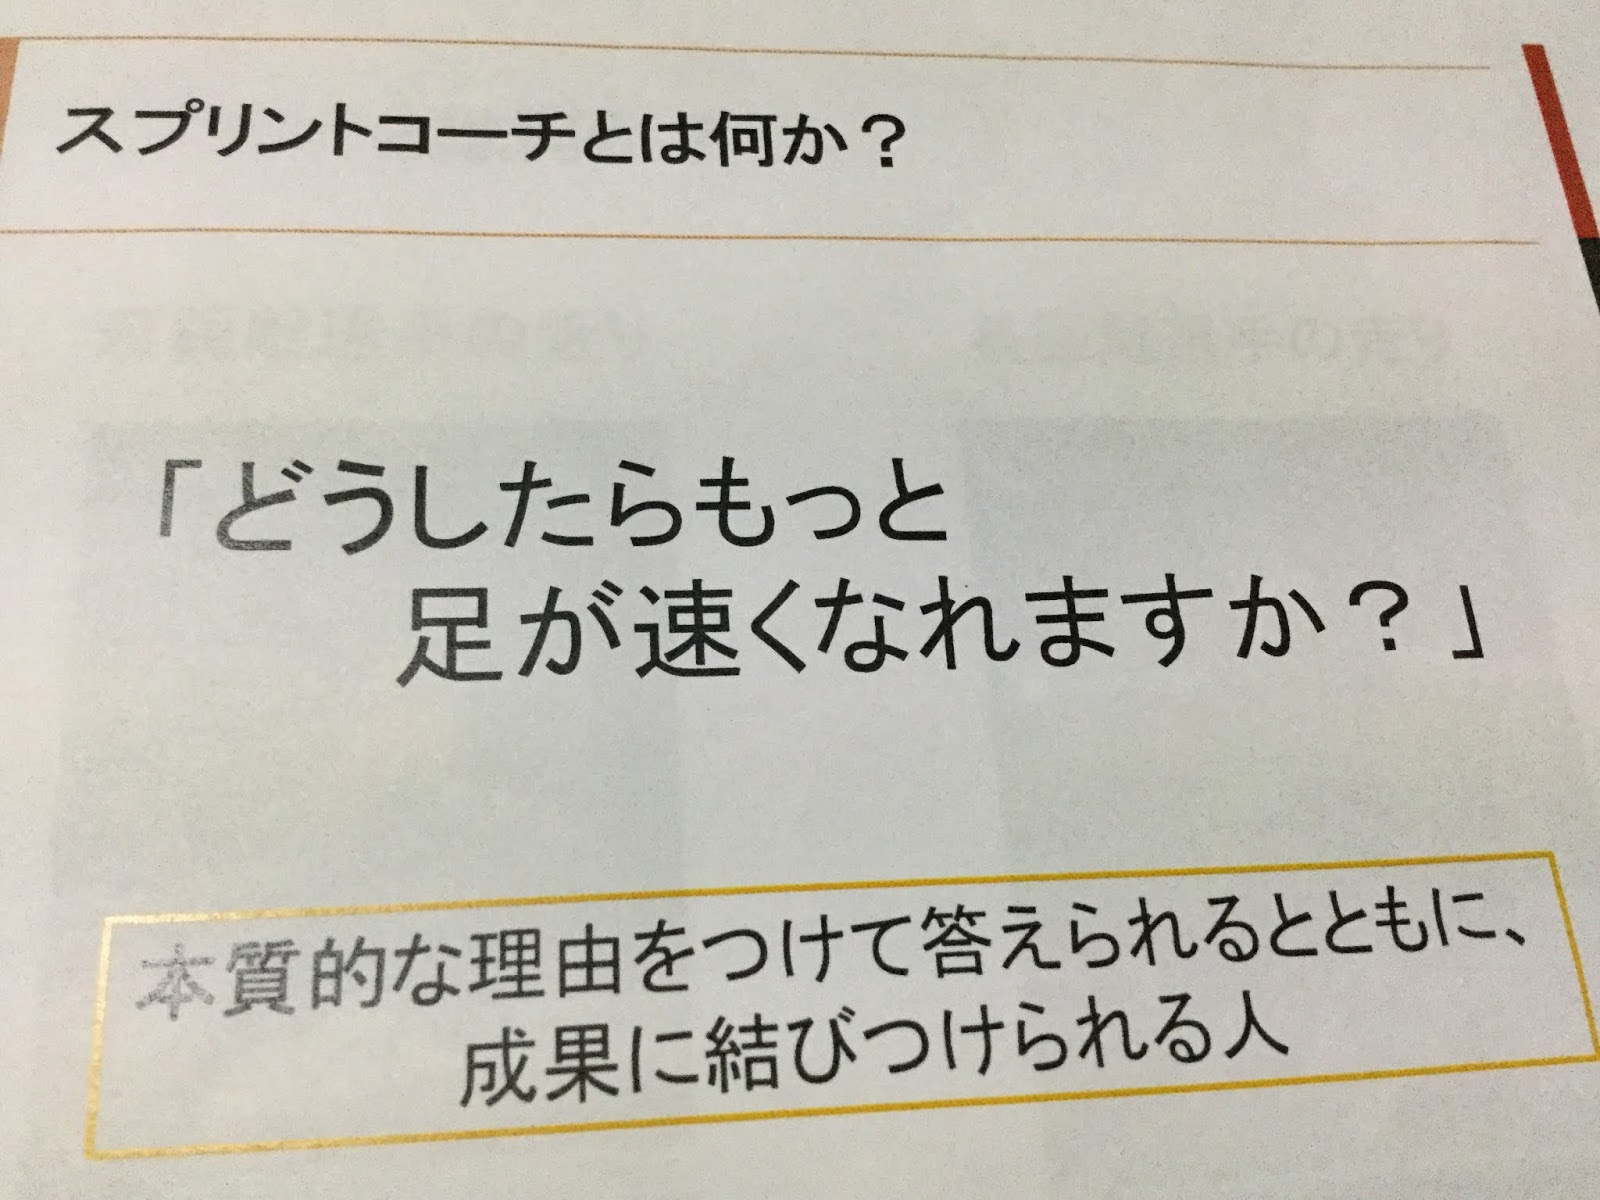 スプリントコーチとは何か？
「どうしたらもっと
足が速くなれますか？」
本質的な理由をつけて答えられるとともに、
成果に結びつけられる人